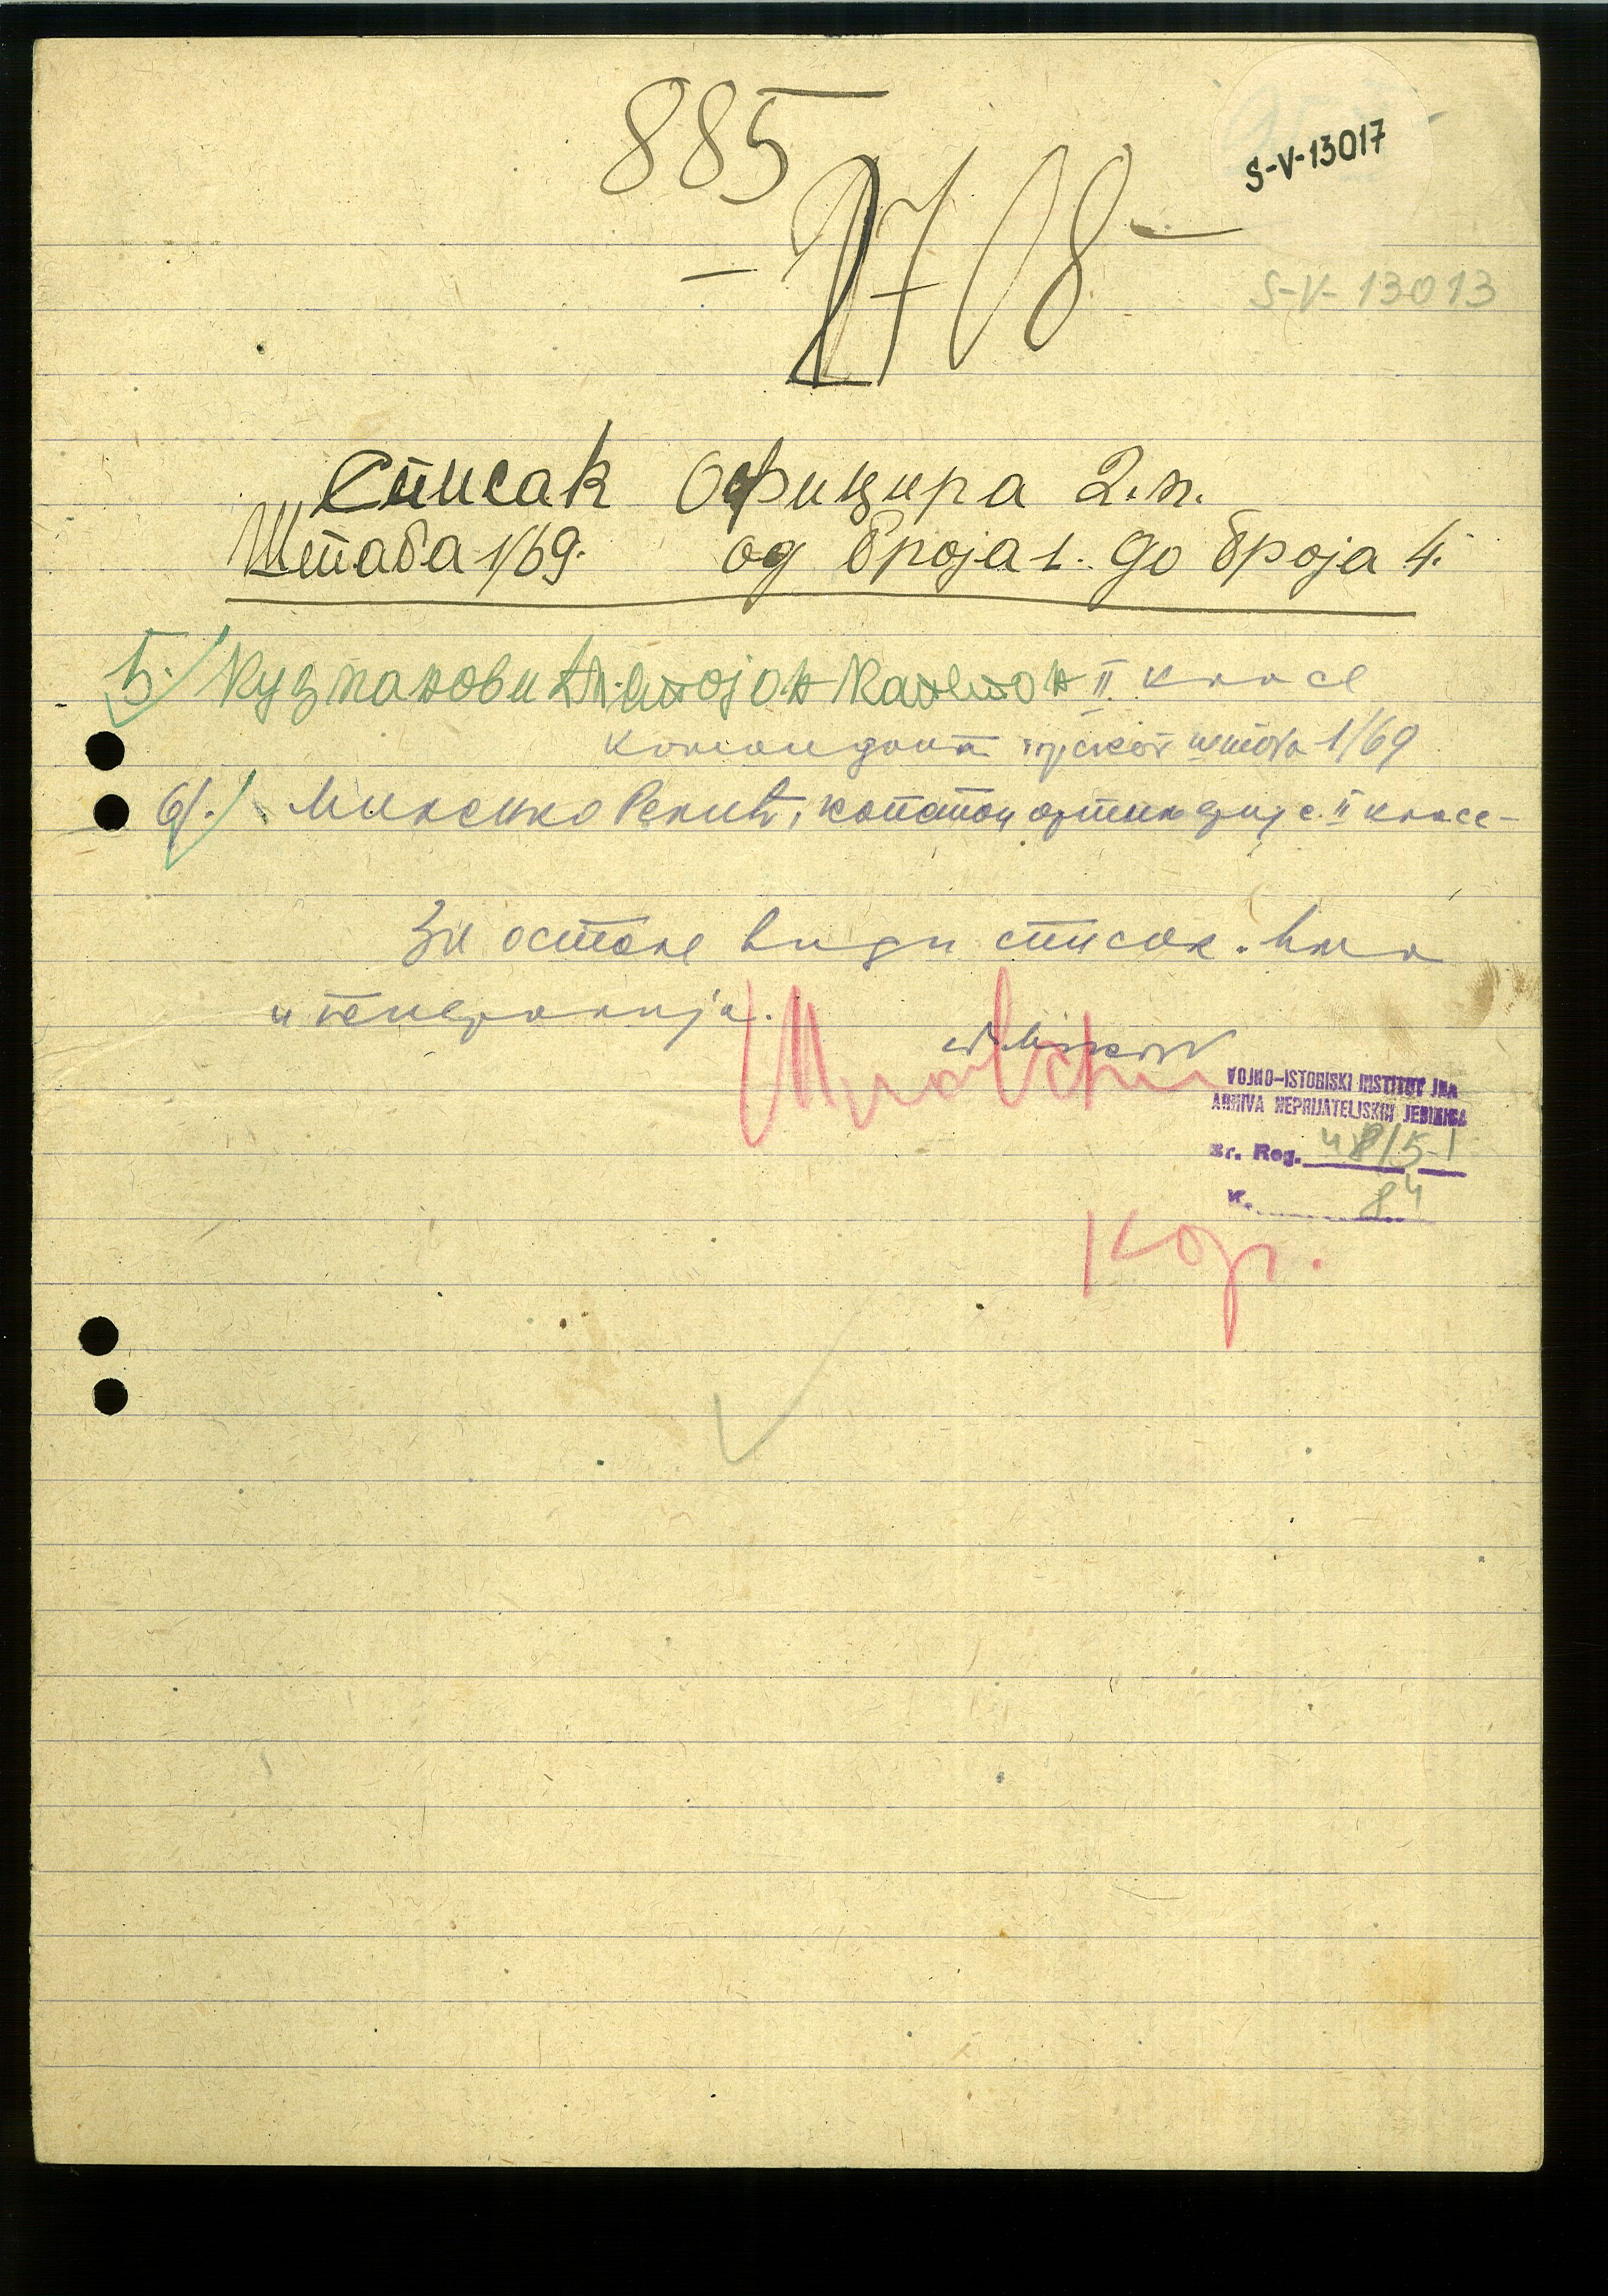 885
S-V-13017
S-V-13013
Списак Официра 2.п.
Штаба 1/69. од броја 1. до броја 4.
5. Кузмановић М. Стојан Капетан II класе
командант прског штаба 1/69
6/. Миленко Релић, капетан артиљерије II класе-
За остале види списак. Има
и генералија.
VOJNO-ISTORISKI INSTITUT JNA
ARHIVA NEPRIJATELJSKIH JEDINICA
Br. Reg. 48/5-1
K. 84